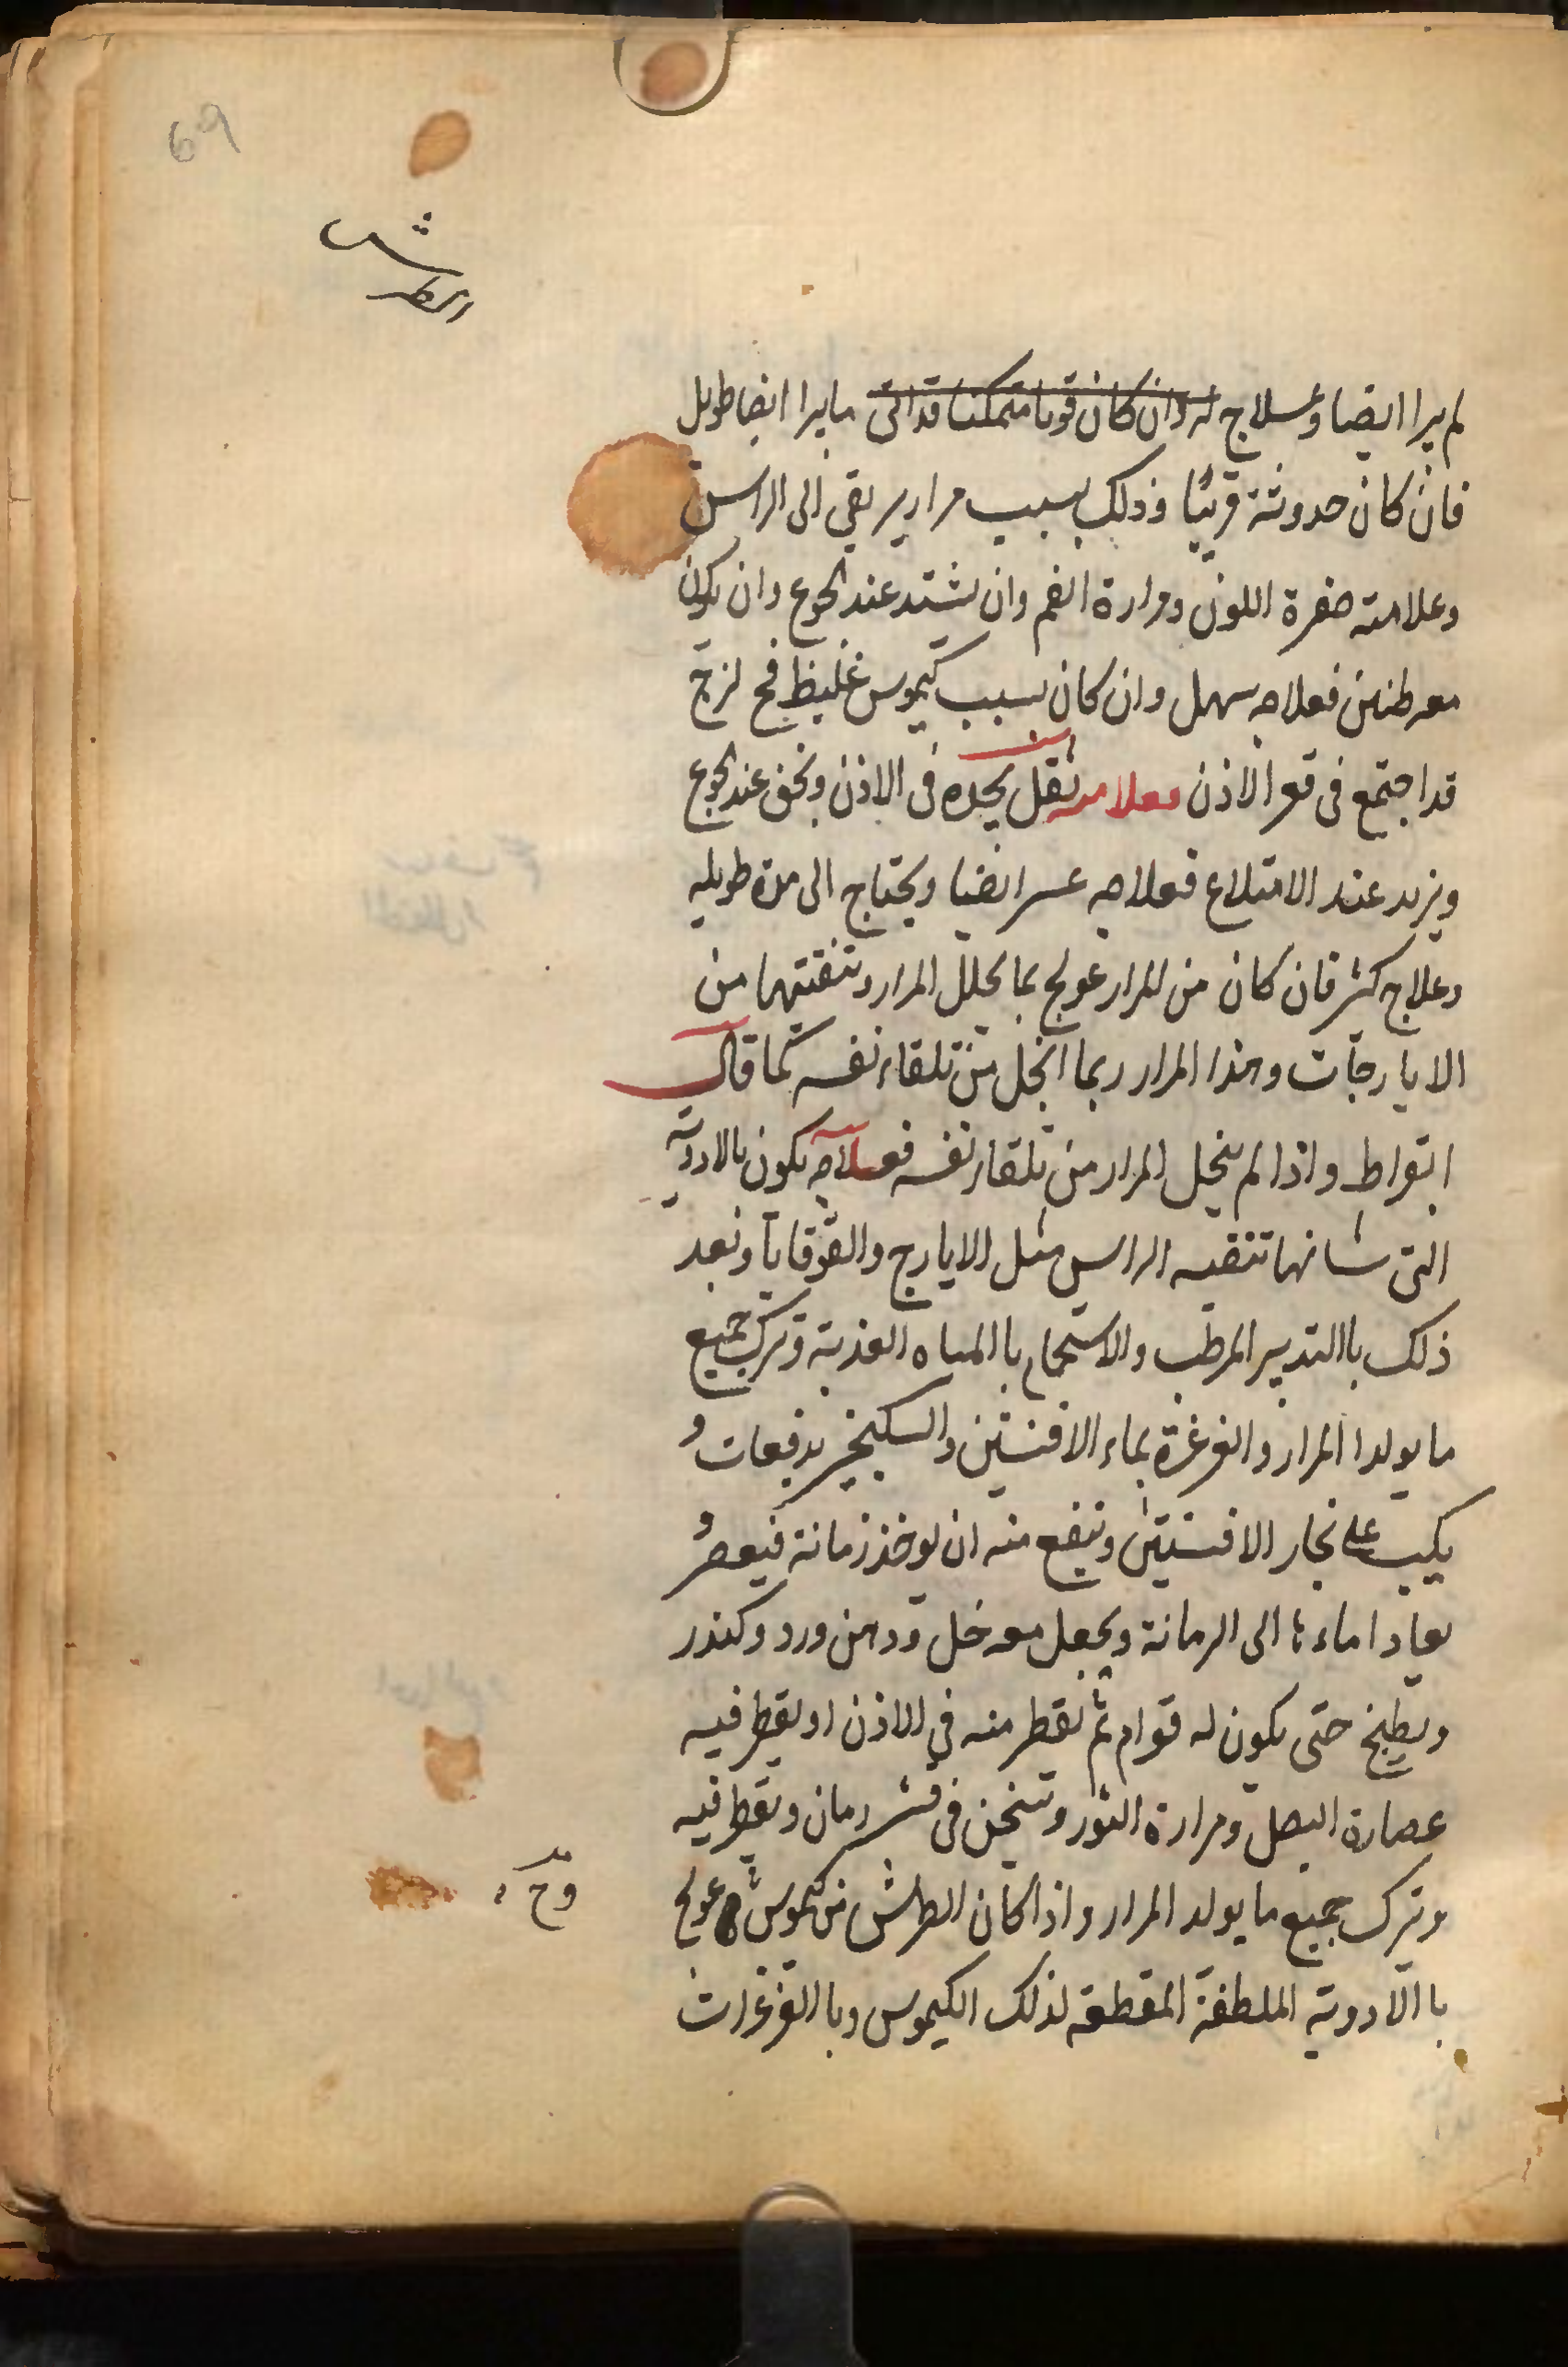 69
الطرش
لم يبرا ايضا وعلاج له وان كان قويا متمكنا قد اتى ما يبرا ايضا طويل
فان كان حدوثة قريبًا وذلك بسبب مرار يرتقي الى الراس
وعلامته صفرة اللون ومرارة الفم وان يشتد عند الجوع وان يكون
معه طنين فعلاجه سهل وان كان بسبب كيموس غليظ فج لزج
قد اجتمع فى قعر الاذن فعلامته ثقل يجده فى الاذن ويخف عند الجوع
ويزيد عند الامتلاء فعلاجه عسر ايضا ويحتاج الى مدة طويله
وعلاج كثير فان كان من المرار عولج بما يحلل المرار وتنقيتهما من
الايارجات وهذا المرار ربما انحل من تلقاء نفسه كما قال
ابقراط واذا لم ينحل المرار من تلقاء نفسه فعلاجه يكون بالادوية
التى شانها تنقيه الراس مثل الايارج والقوقايا وبعد
ذلك باالتدبير المرطب والاستحمام باالمياه العذبة وترك جميع
ما يولدا المرار والغرغرة بماء الافسنتين والسكنجبين بدفعات و
يكب على بخار الافسنتين وينفع منه ان يوخذ رمانة فيعصر و
يعاد اماءها الى الرمانة ويجعل معه خل ودهن ورد وكندر
ويطبخ حتى يكون له قوام ثم يقطر منه في الاذن او يقطر فيه
عصارة البصل ومرارة الثور وتسخن فى قشر رمان ويقطر فيه
وترك جميع ما يولد المرار واذا كان الطرش من كيموس عولج
باالادوية الملطفة المقطعة لذلك الكيموس وباالغرغرات